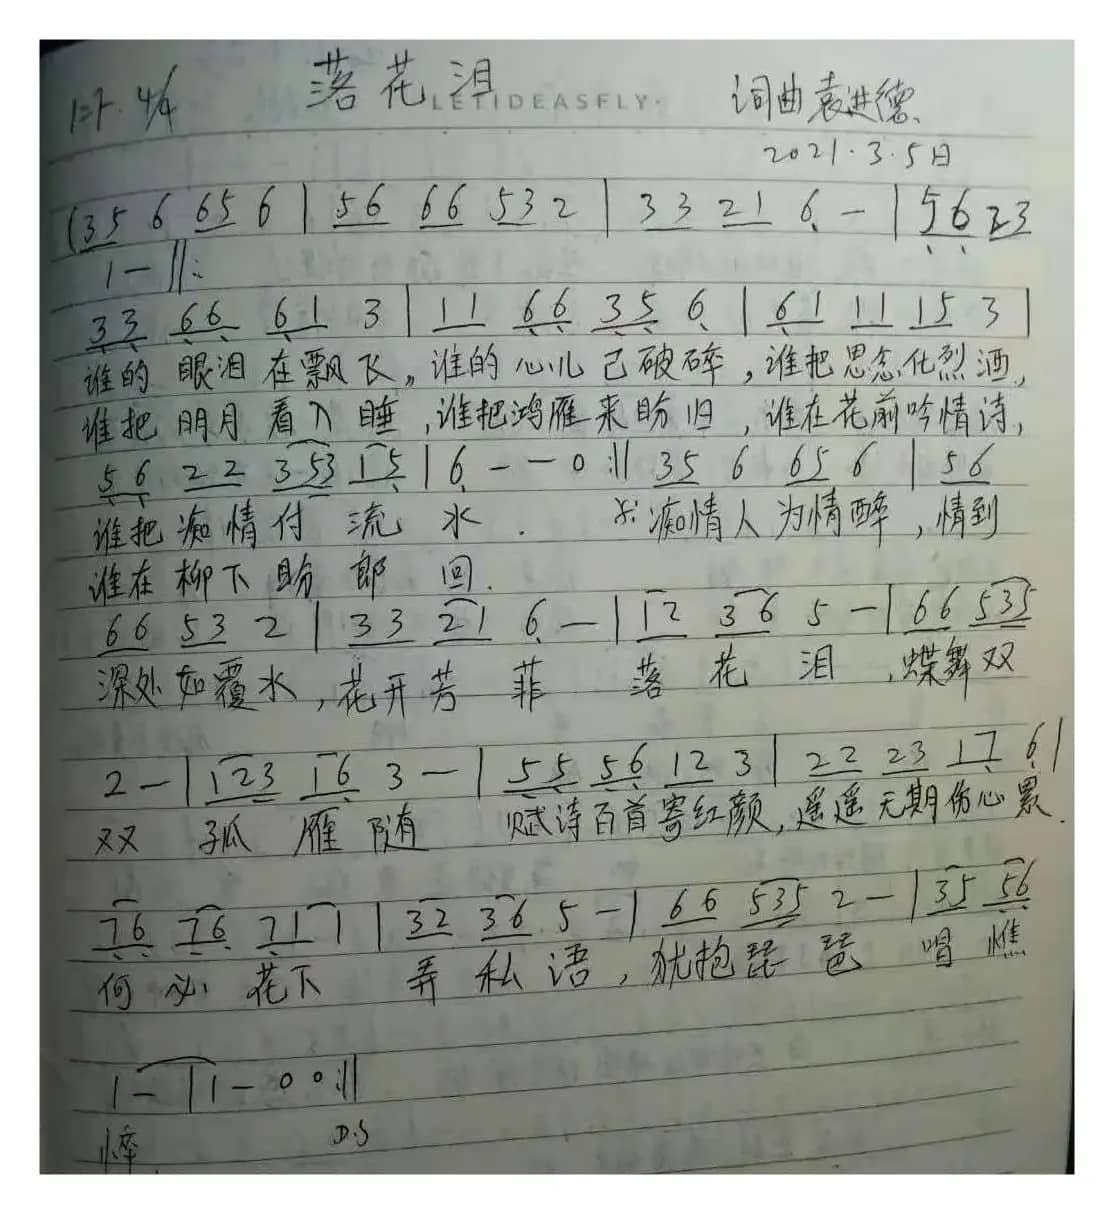 1=F 4/4 落花泪 词曲袁进德
LETIDEASFLY
2021.3.5日
(35 6 65 6 | 56 66 53 2 | 33 21 6 - | 56 23
1 - ‖:
33 66 61 3 | 11 66 35 6 | 61 11 15 3 |
谁的 眼泪 在飘飞,谁的心儿已破碎,谁把思念化烈酒,
谁把 明月 看入睡,谁把鸿雁来盼归,谁在花前吟情诗,
56 22 353 15 | 6 - - 0 :‖ 35 6 65 6 | 56
谁把痴情付流水. 痴情人为情醉,情到
谁在柳下盼郎回.
66 53 2 | 33 21 6 - | 12 36 5 - | 66 535
深处如覆水,花开芳菲 落花泪,蝶舞双
2 - | 123 16 3 - | 55 56 12 3 | 22 23 17 6 |
双 孤雁随 赋诗百首寄红颜,遥遥无期伤心累.
76 76 71 1 | 32 36 5 - | 66 535 2 - | 35 56
何必花下弄私语,犹抱琵琶唱憔
1 - | 1 - 0 0 :‖
悴. D.S